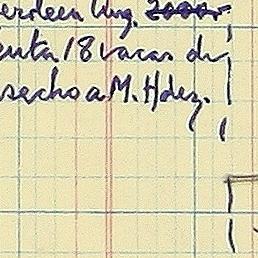 erdeen Ang.
enta 18 vacas de
secho a M. Hdez.